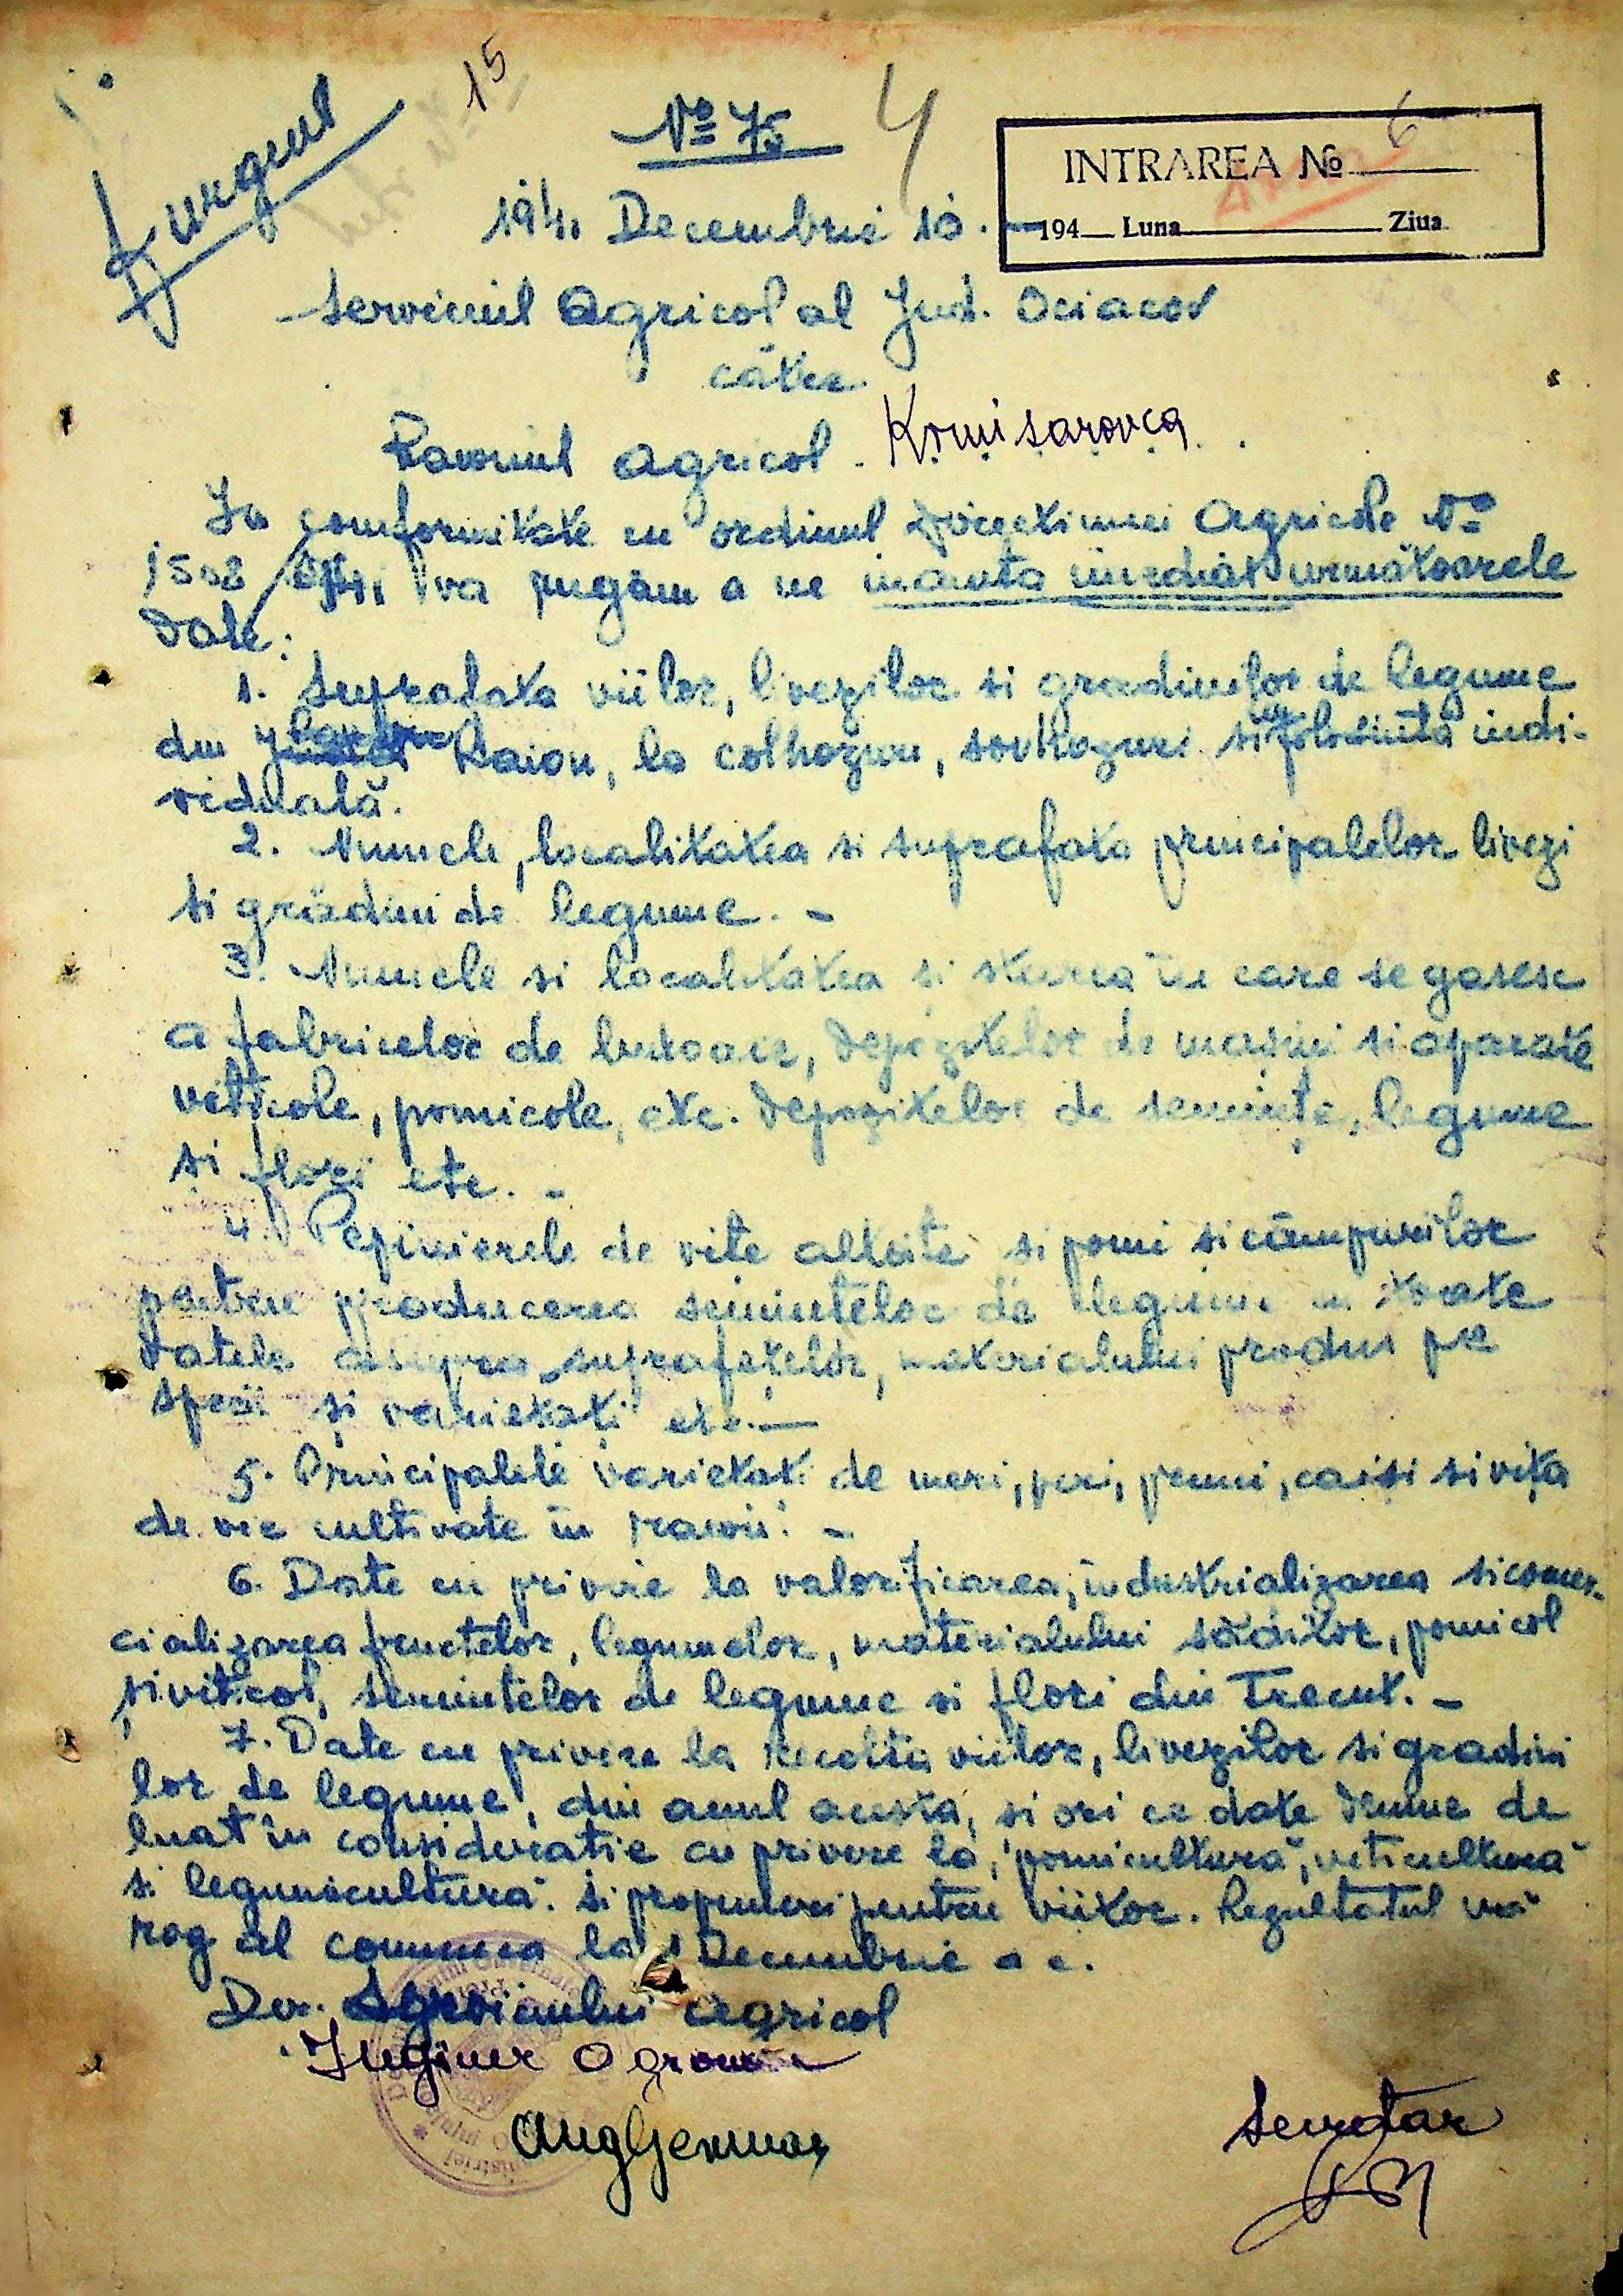 f. urgent
15
No 75
4
INTRAREA No 6
194 Luna Ziua
1941 Decembrie 10. -
Serviciul Agricol al Jud. Ociacov
către
Raionul agricol. Komisarovca
In conformitate cu ordinul Direcțiunei Agricole No
1502 /941 va rugăm a ne inainta imediat urmâtoarele
date:
1. Suprafata viilor, livezilor si gradinilor de legume
din Raion, la colhozuri, sovhozuri si in folosintă indi-
viduală.
2. Numele, localitatea si suprafata principalelor livezi
si grădini de legume. -
3. Numele si localitatea și starea în care se gasesc
a fabricelor de butoaie, depozitelor de masini si aparate
viticole, pomicole, etc. depozitelor de semințe, legume
si flori etc. -
4. Pepinierele de vite altoite si pomi și câmpurilor
pentru producerea semintelor de legume cu toate
datele asupra suprafețelor, materialului produs pe
specii și varietati etc. —
5. Principalele varietati de meri, peri, pruni, caiși si vița
de vie cultivate în raion. -
6. Date cu privire la valorificarea, industrializarea si comer-
cializarea fructelor, legumelor, materialului săditor, pomicol
și viticol, semintelor de legume si flori din Trecut. -
7. Date cu privire la recolta viilor, livezilor si gradini
lor de legume, din anul acesta, si ori ce date demne de
luat în consideratie cu privire la, pomicultură, viticultură
si legumicultură. si propuneri pentru viitor. Rezultatul vă
rog al comunica la 1 Decembrie a c.
Dir. Serviciului agricol
Inginer Agronom
Secretar